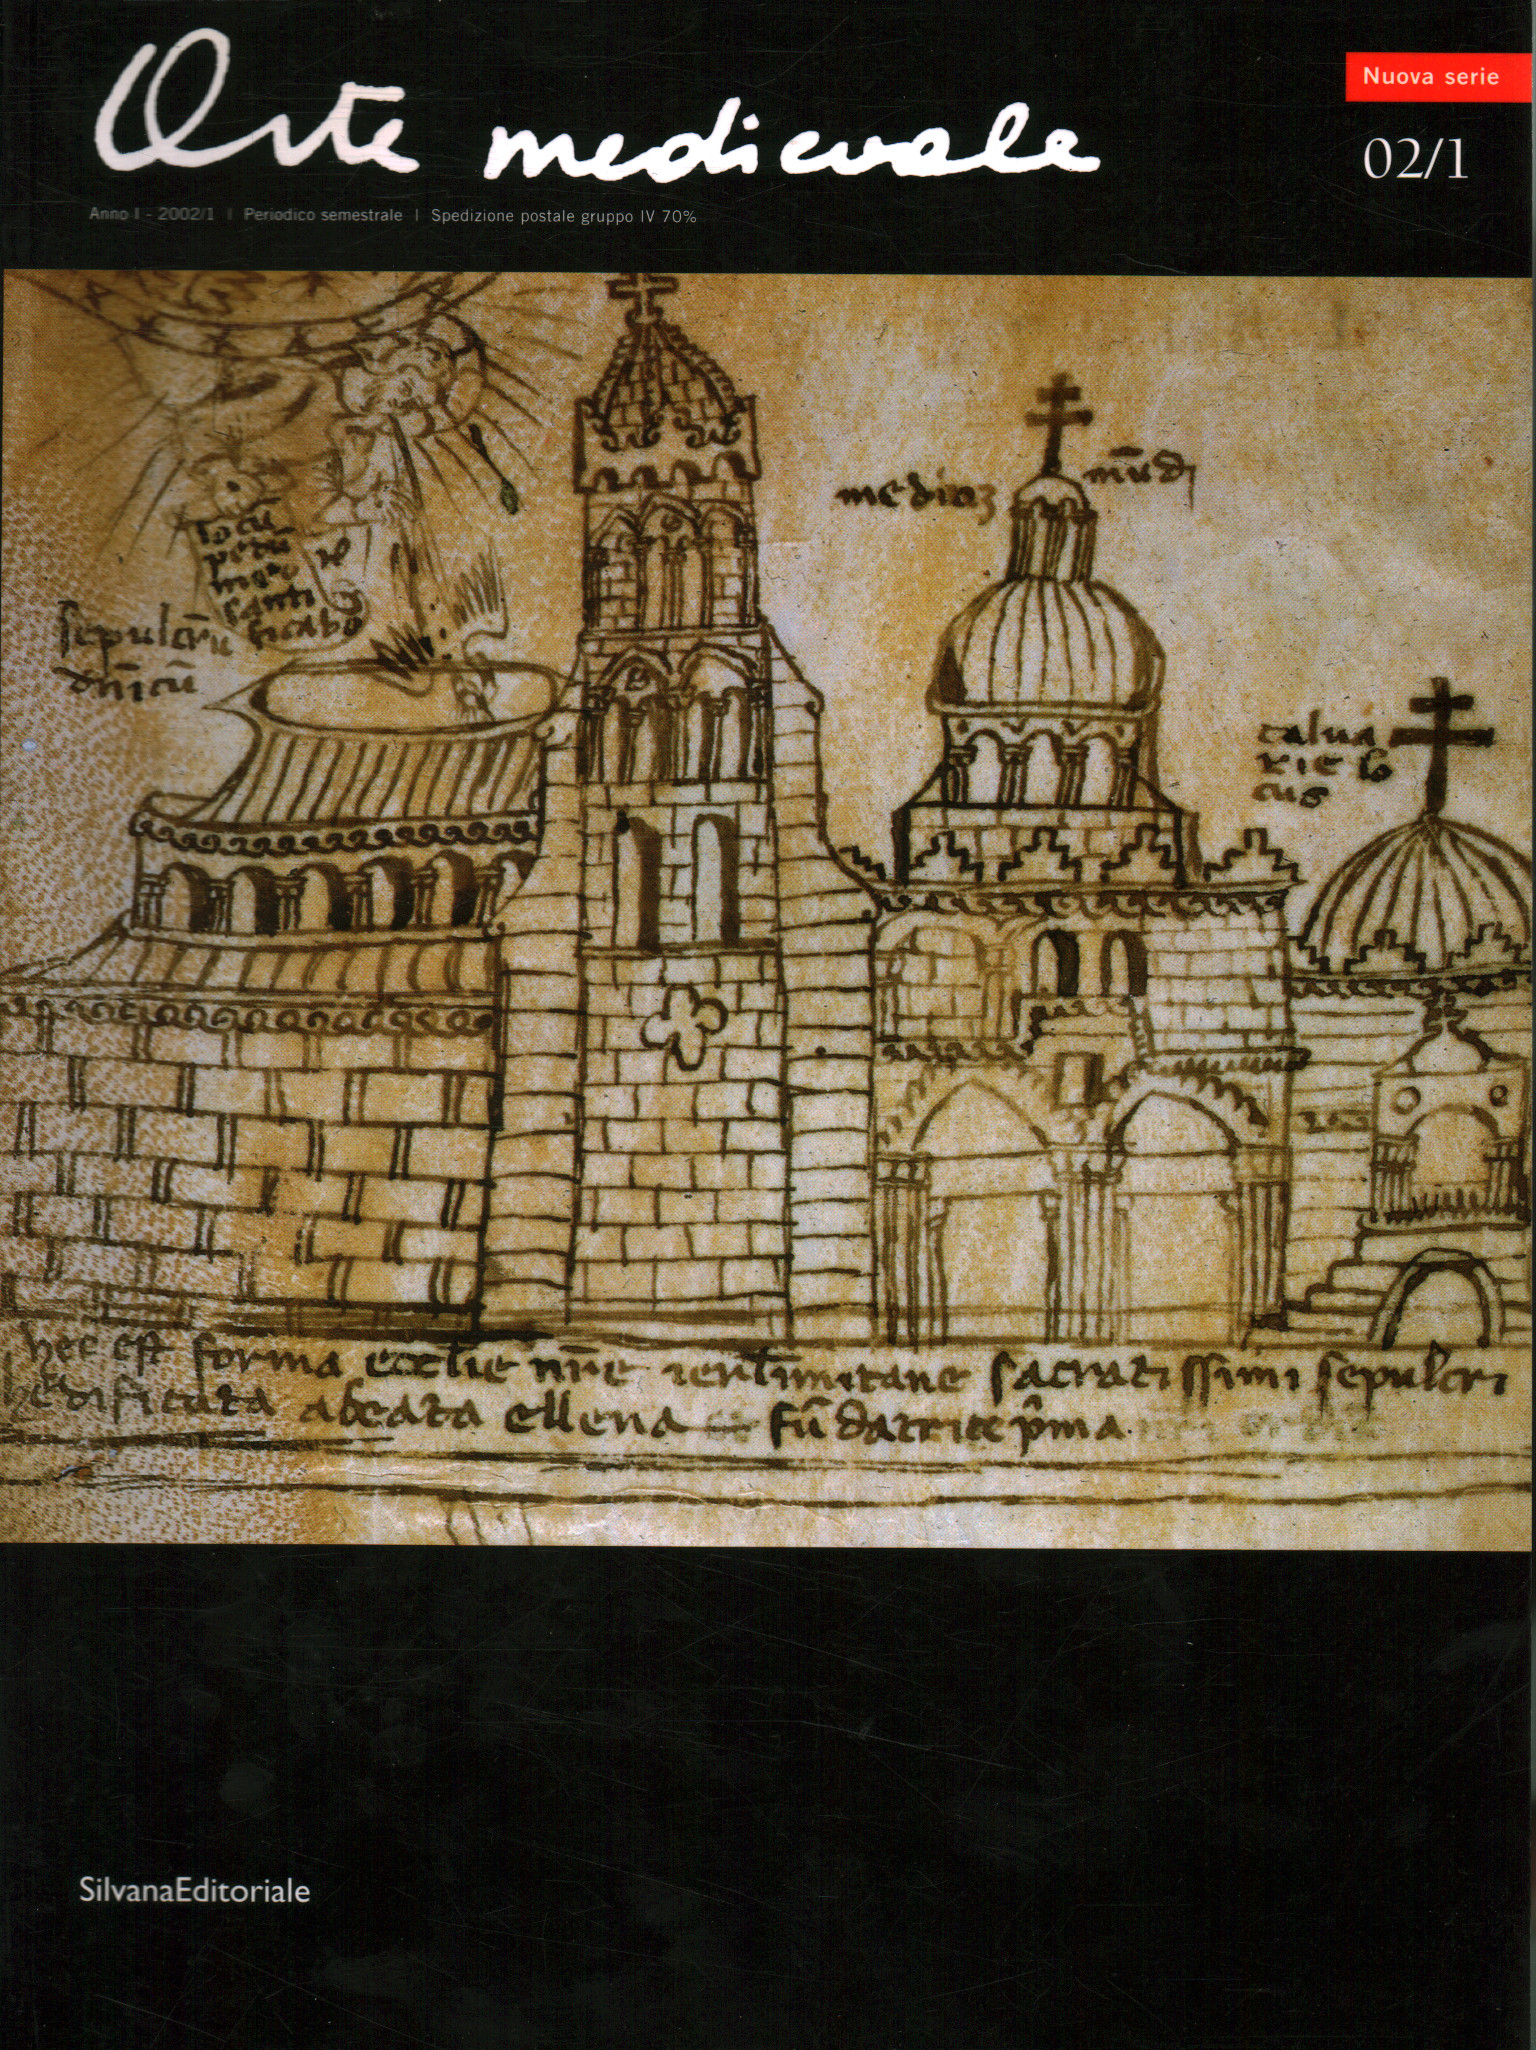 Arte medievale
Nuova serie
02/1
Anno I - 2002/1 | Periodico semestrale | Spedizione postale gruppo IV 70%
mediũ mũdi
locũ
pedũ
sãnti
ficabo
sepulcrũ
dñicũ
calua
rie lo
cus
hec est forma ecclie nr̃e ierlimitane sacratissimi sepulcri
hedificata abeata ellena fũdatrice p̃ma
SilvanaEditoriale